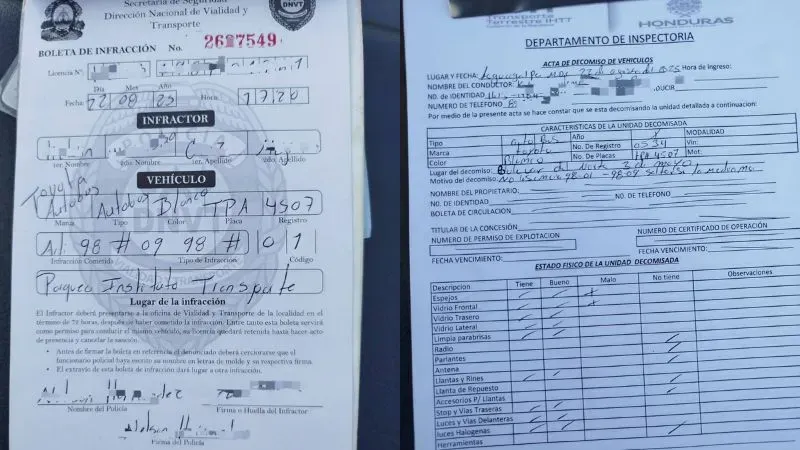 Secretaría de Seguridad
Dirección Nacional de Vialidad y
Transporte
DNVT
BOLETA DE INFRACCIÓN No. 2617549
Licencia Nº.
Día Mes Año
Fecha: 22 08 25 Hora: 1720
INFRACTOR
1er. Nombre 2do. Nombre 1er. Apellido 2do. Apellido
VEHÍCULO
Toyota
Autobus Autobus Blanco TPA 4507
Marca Tipo Color Placa Registro
Art 98 # 09 98 # 01
Infracción Cometida Tipo de Infracción Código
Instituto Transporte
Lugar de la infracción
El Infractor deberá presentarse a la oficina de Vialidad y Transporte de la localidad en el
término de 72 horas, después de haber cometido la infracción. Entre tanto esta boleta servirá
como permiso para conducir el mismo vehículo, su licencia quedará retenida hasta hacer acto
de presencia y cancelar la sanción.
• Antes de firmar la boleta en referencia el denunciado deberá cerciorarse que el
funcionario policial haya escrito su nombre en letras de molde y su respectiva firma.
• El extravío de esta boleta de infracción dará lugar a otra infracción.
Nombre del Policía Firma o Huella del Infractor
Firma del Policía
Transporte
Terrestre IHTT
HONDURAS
DEPARTAMENTO DE INSPECTORIA
ACTA DE DECOMISO DE VEHICULOS
LUGAR Y FECHA: Tegucigalpa MDC 22 de agosto del 2025 Hora de ingreso:
NOMBRE DEL CONDUCTOR:
NO. DE IDENTIDAD
NUMERO DE TELEFONO
Por medio de la presente acta se hace constar que se esta decomisando la unidad detallada a continuacion:
CARACTERISTICAS DE LA UNIDAD DECOMISADA
Tipo autobus Año MODALIDAD
Marca toyota No. De Registro 0534 Vin:
Color Blanco No. De Placas TPA 4507 Mot:
Lugar del decomiso: Bulevar del Norte 2 de mayo
Motivo del decomiso: No licencia 98-01 - 98-09
NOMBRE DEL PROPIETARIO:
NO. DE IDENTIDAD NO. DE TELEFONO
BOLETA DE CIRCULACION
TITULAR DE LA CONCESIÓN
NUMERO DE PERMISO DE EXPLOTACION NUMERO DE CERTIFICADO DE OPERACIÓN
FECHA VENCIMIENTO: FECHA VENCIMIENTO:
ESTADO FISICO DE LA UNIDAD DECOMISADA
Descripcion Tiene Bueno Malo No tiene Observaciones
Espejos
Vidrio Frontal
Vidrio Trasero
Vidrio Lateral
Limpia parabrisas
Radio
Parlantes
Antena
Llantas y Rines
Llanta de Repuesto
Accesorios P/ Llantas
Stop y Vias Traseras
Luces y Vias Delanteras
luces Halogenas
Herramientas